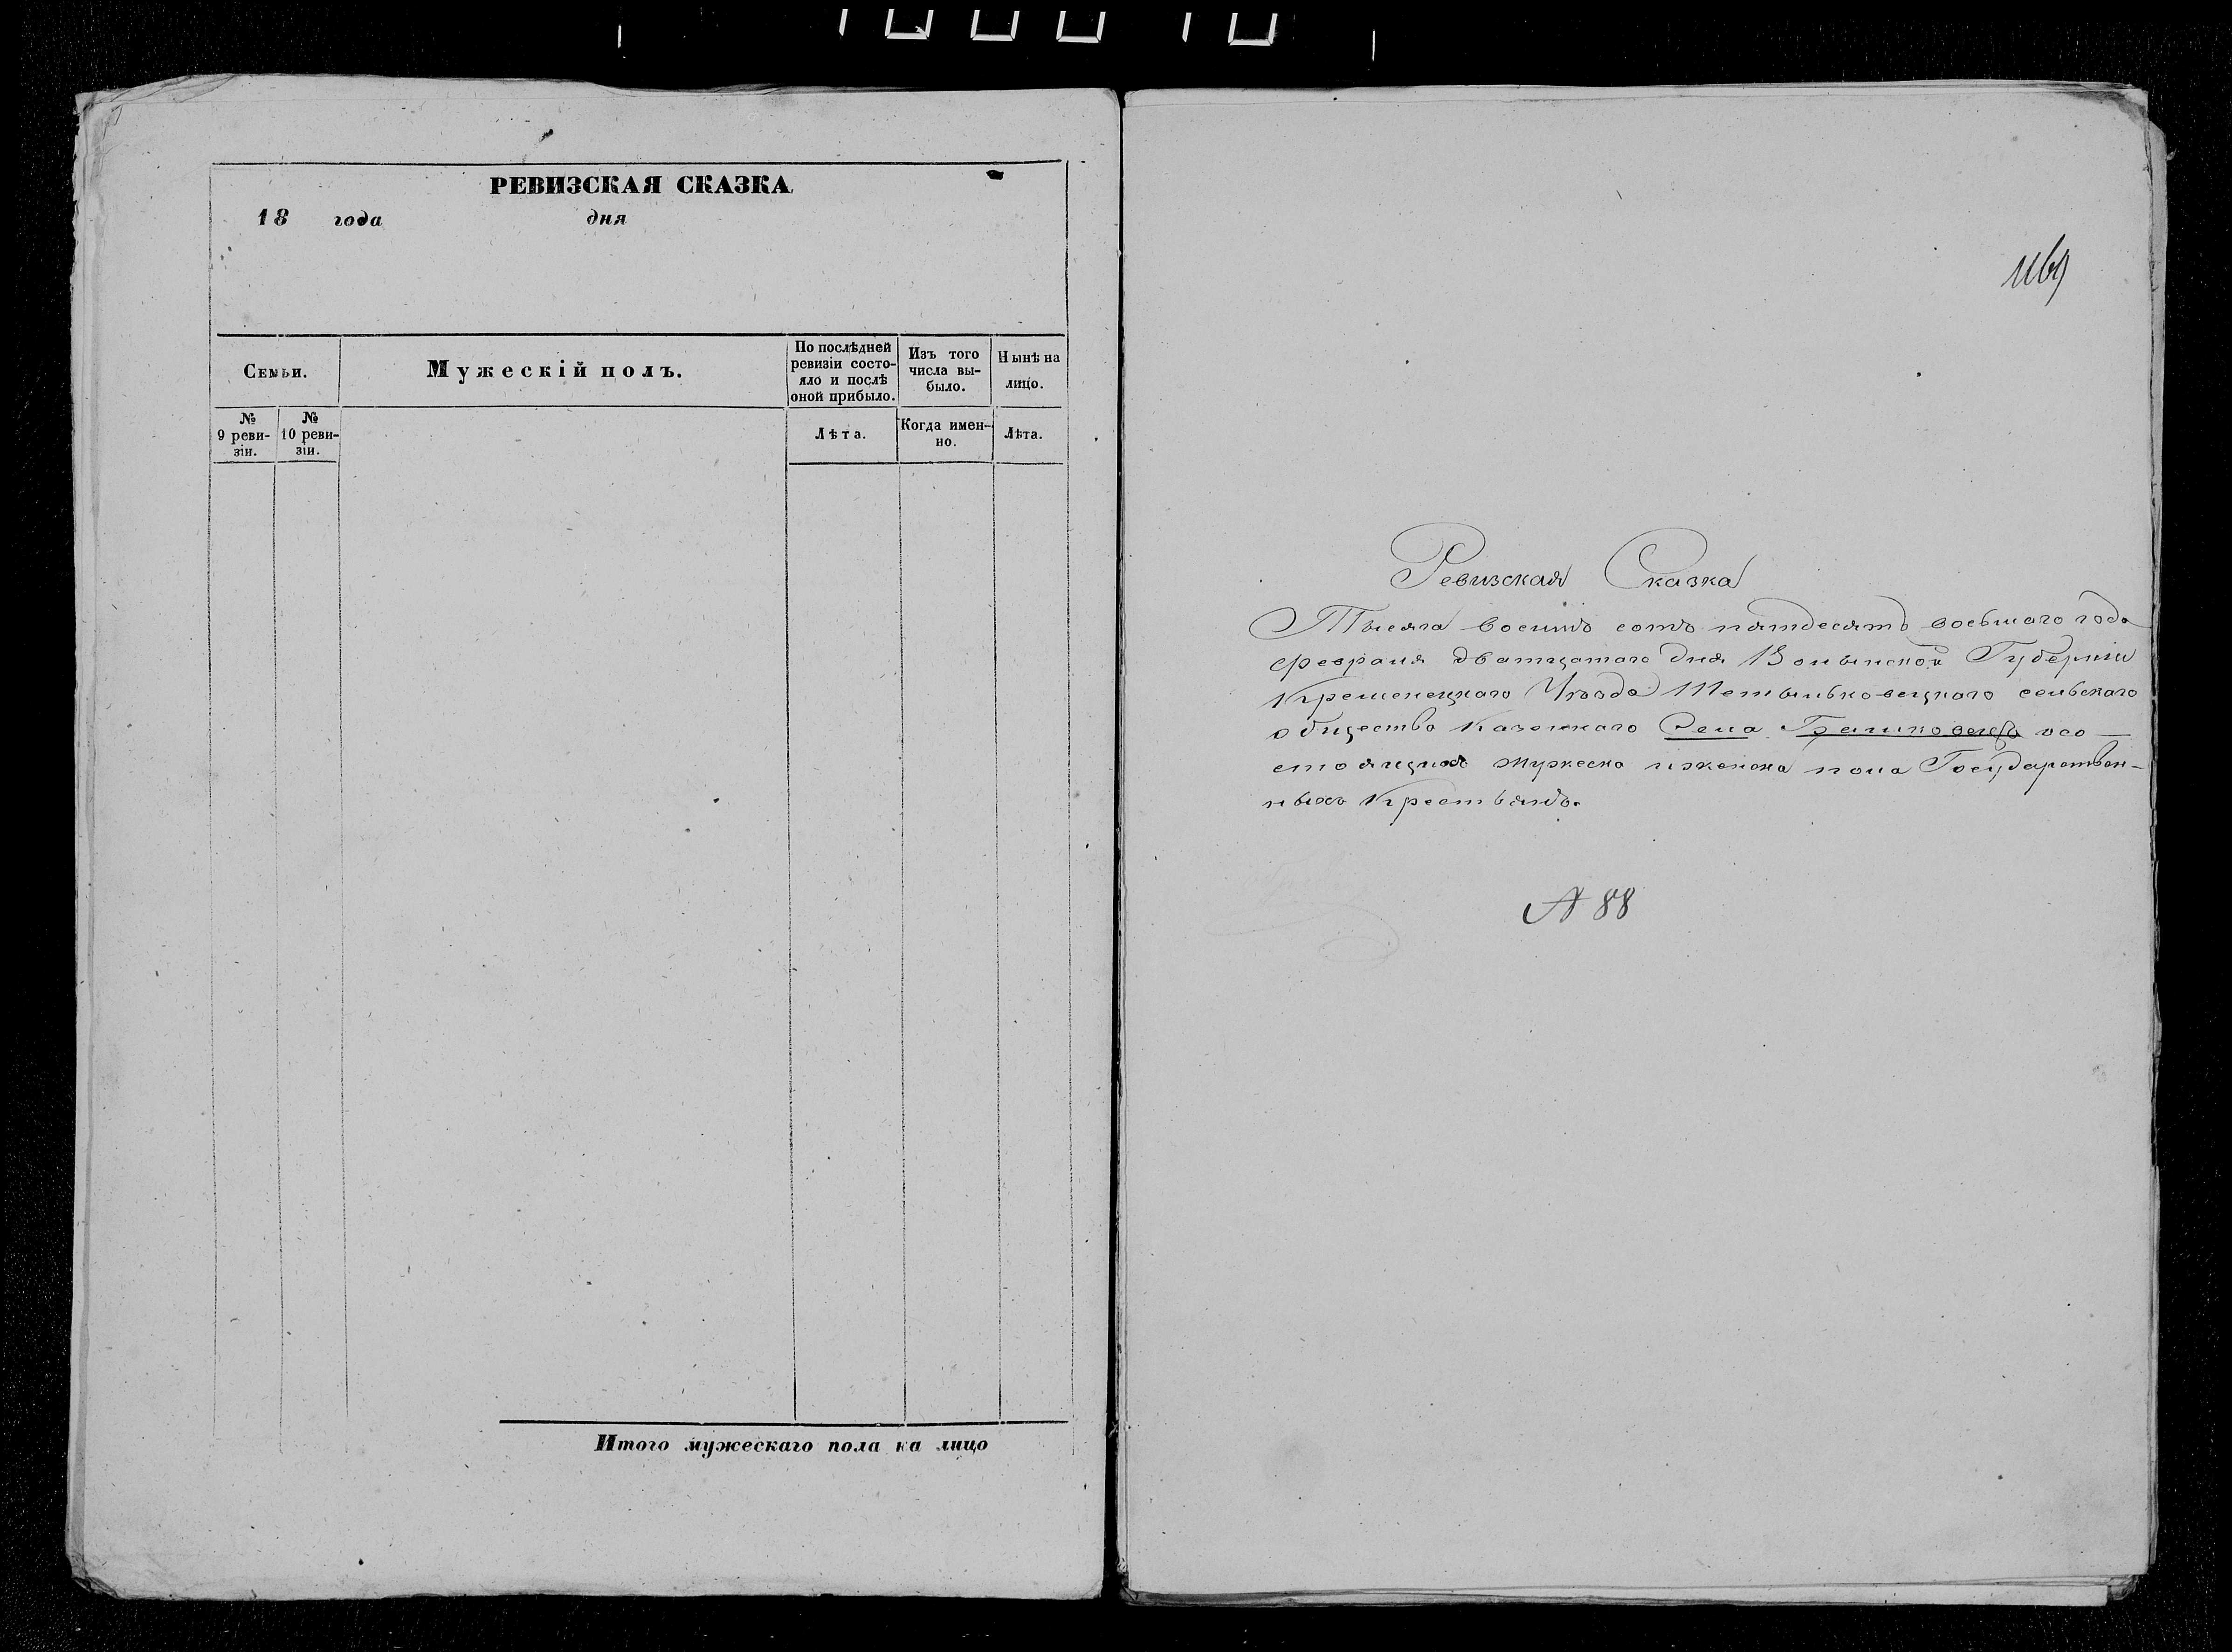 РЕВИЗСКАЯ СКАЗКА
18 года дня
Семьи.
Мужескій полъ.
По послѣдней
ревизіи состо-
яло и послѣ
оной прибыло.
Изъ того
числа вы-
было.
Нынѣ на
лицо.
№
9 реви-
зіи.
№
10 реви-
зіи.
Лѣта.
Когда имен-
но.
Лѣта.
Итого мужескаго пола на лицо
Ревизская Сказка
Тысяча восимъ сотъ пятдесятъ восьмаго года
февраля дватцатаго дня Волынской Губерніи
Кременецкаго Уѣзда Тетыльковецкаго сельскаго
общества Казеннаго Села
стоящихъ мужеска иженска пола Государствен-
ныхъ Крестьянъ.
88